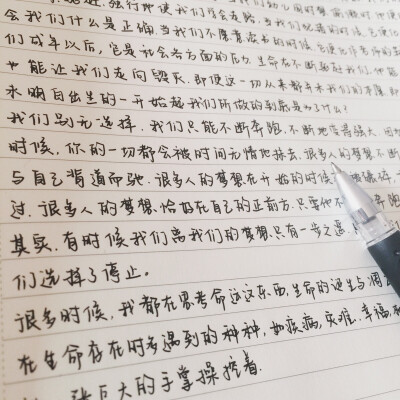 强行即使我们学会走路
会我们什么是正确,当我们不愿意读书的时候,它便
们成年以后,它是社会各方面的压力,生命在不断
也能让我们走向毁灭.即使这一切从来都
永明自出生的一开始起我们所做的到底是为了什么?
我们别无选择,我们只能不断奔跑,不断地
时候,你的一切都会被时间无情地抹去.很多人的梦想不断
与自己背道而驰.很多人的梦想在开始的时候
过.很多人的梦想,恰好在自己的正前方.只要他不 奔跑
其实,有时候我们离我们的梦想只有一步之遥
们选择了停止.
很多时候,我都在思考命运这东西,生命的诞生与凋
在生命存在时多遇到的种种,如疾病,灾难,幸福,
张巨大的手掌操控着.